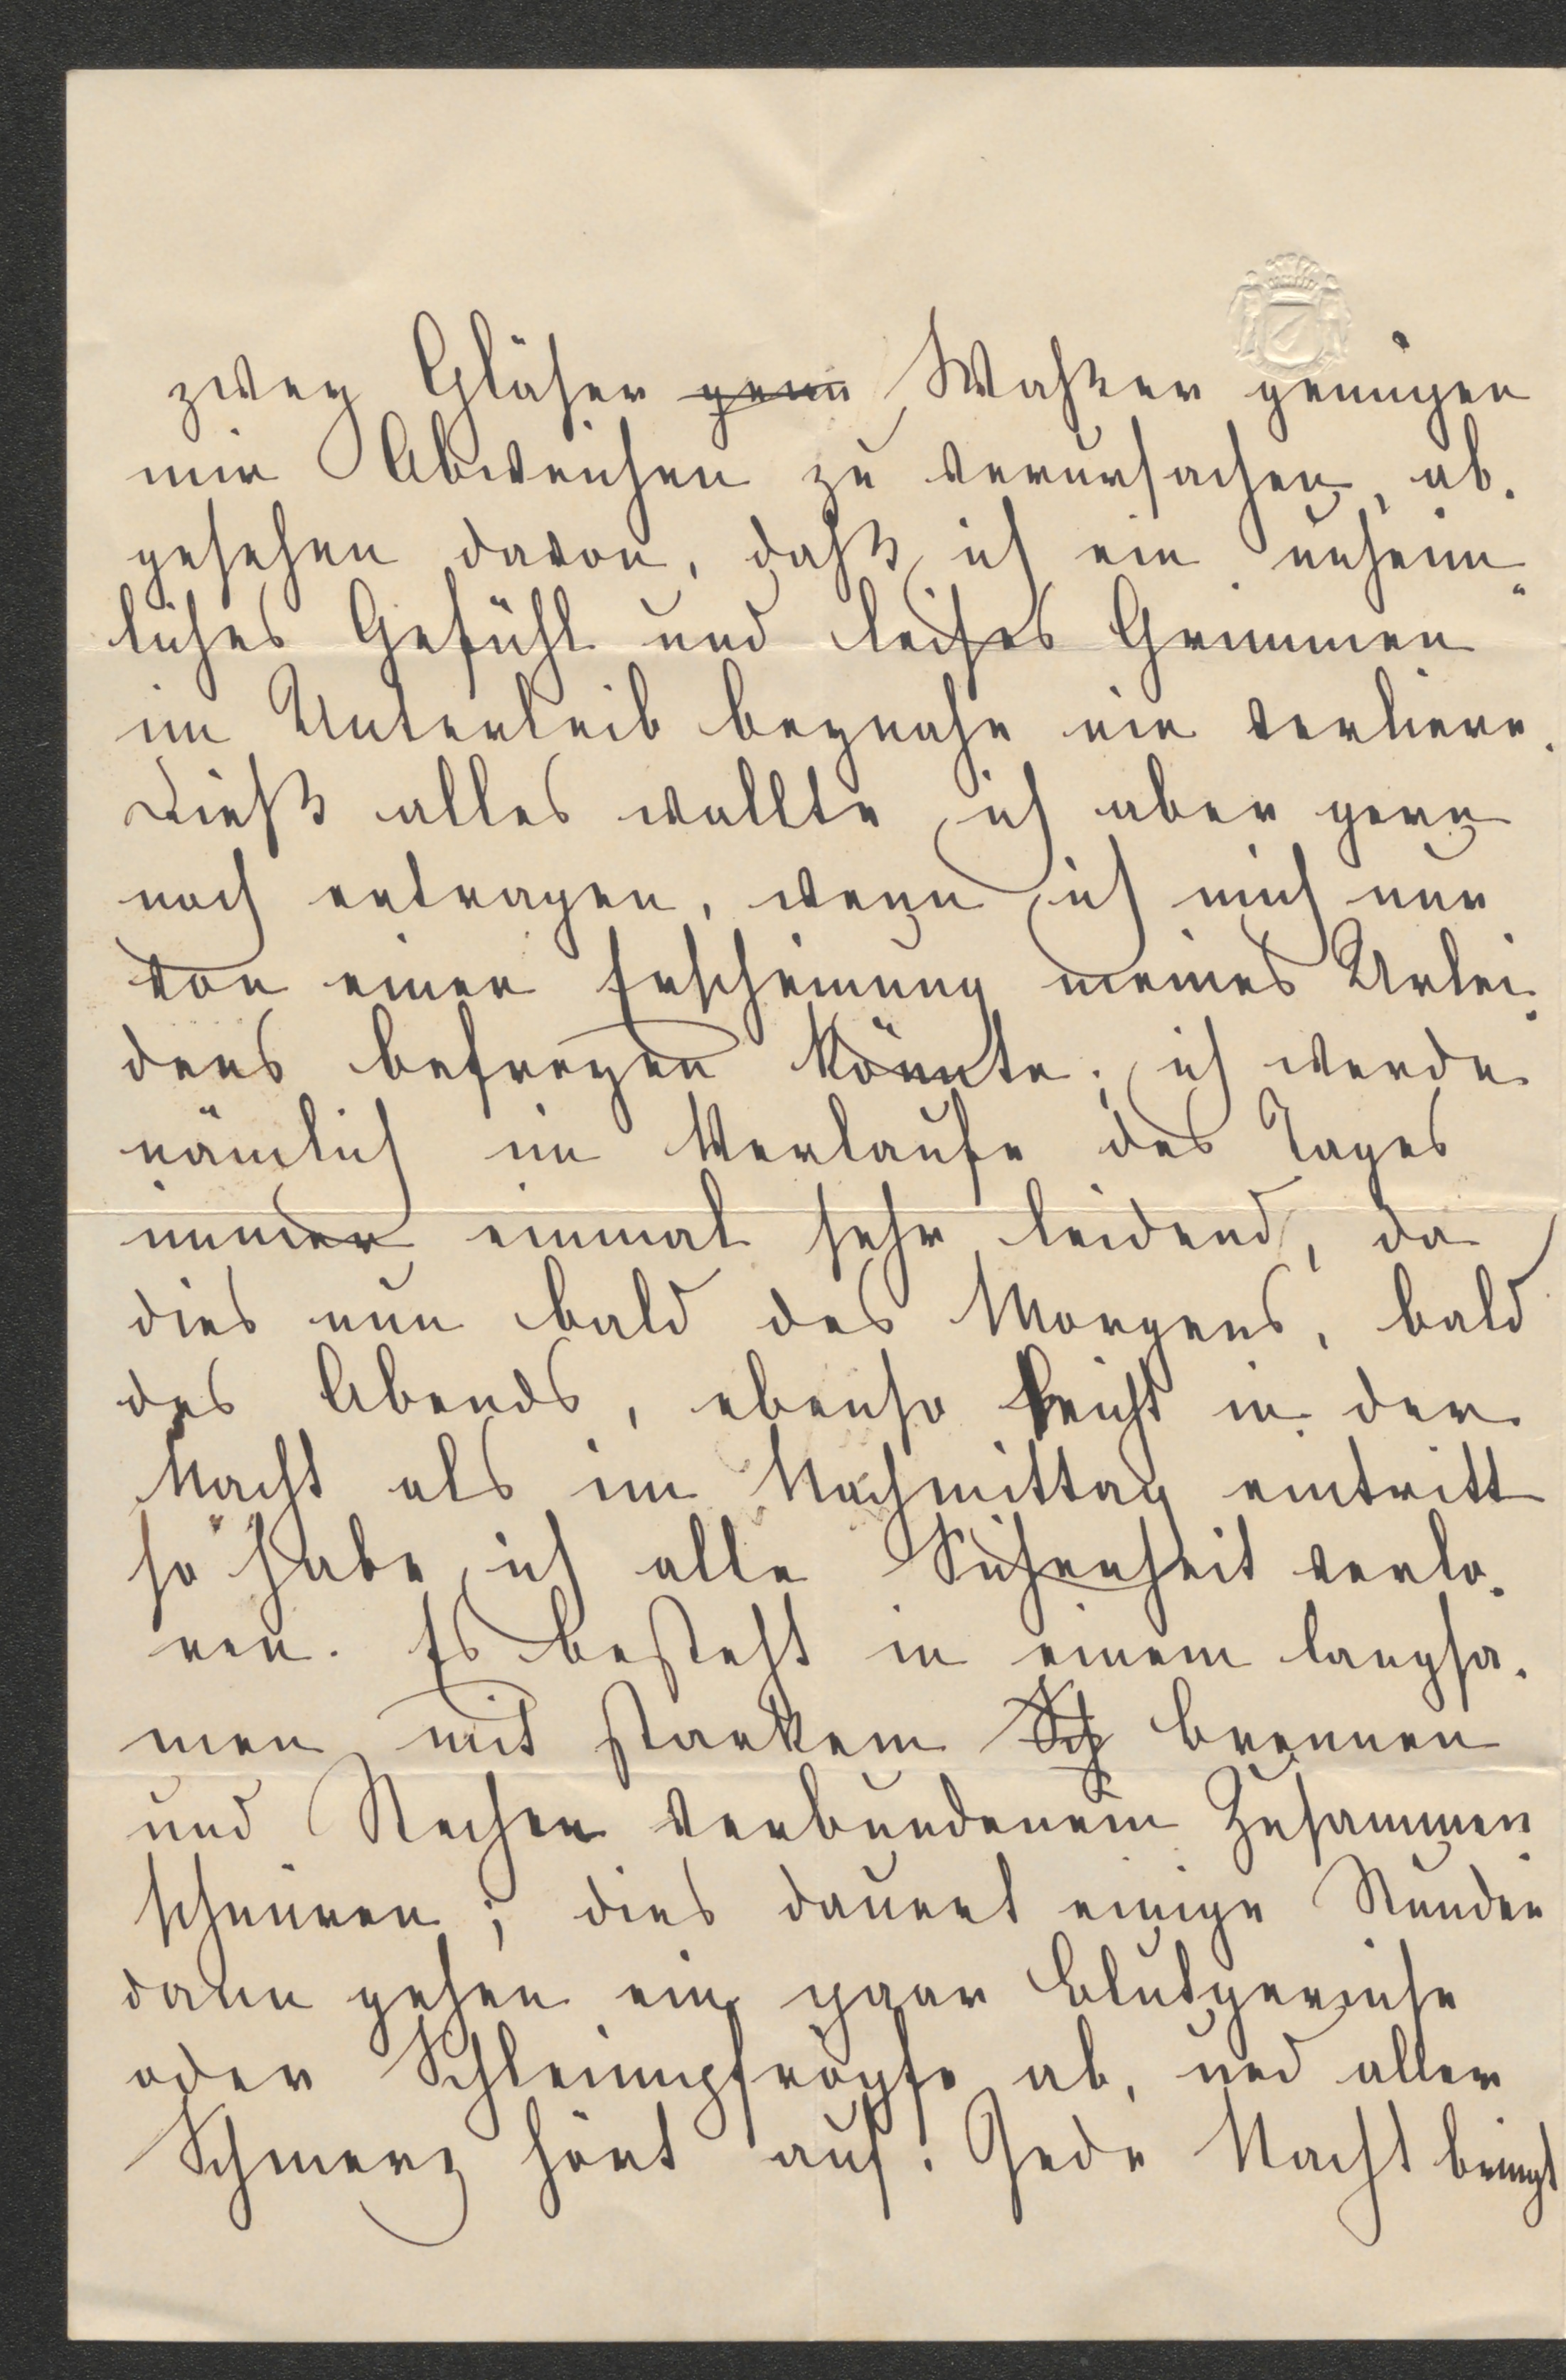 zwey Gläser genü Waßer genügen
mir Abweichen zu verursachen, ab-
gesehen davon, daß ich ein unheim-
liches Gefühl und leises Grimmen
im Unterleib beynahe nie verliere.
Dieß alles wollte ich aber gern
noch ertragen, wenn ich mich nur
von einer Erscheinung meines Urlei-
dens befreyen könnte; ich werde
nämlich im Verlaufe des Tages
immer einmal sehr leidend, da
dies nun bald des Morgens, bald
des Abends, ebenso leicht in der
Nacht als im Nachmittag eintritt
so habe ich alle Sicherheit verlo-
ren. Es besteht in einem langsa-
men mit starkem Sch brennen
und Stechen verbundenem Zusammen
schnüren; dies dauert einige Stunden
dann gehen ein paar Blutgerinse
oder Schleimpfröpfe ab, und aller
Schmerz hört auf. Jede Nacht bringt